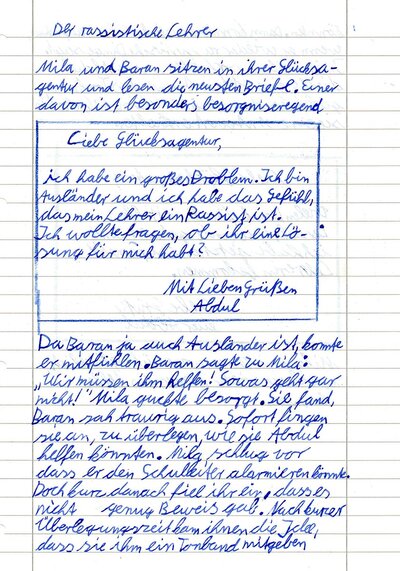 Der rassistische Lehrer
Mila und Baran sitzen in ihrer Glücksa-
gentur und lesen die neusten Briefe. Einer
davon ist besonders besorgniseregend
Liebe Glücksagentur,
ich habe ein großes Problem. Ich bin
Ausländer und ich habe das Gefühl,
das mein Lehrer ein Rassist ist.
Ich wollte fragen, ob ihr eine Lö-
sung für mich habt?
Mit Lieben Grüßen
Abdul
Da Baran ja auch Ausländer ist, konnte
er mitfühlen. Baran sagte zu Mila:
„Wir müssen ihm helfen! Sowas geht gar
nicht!" Mila guckte besorgt. Sie fand,
Baran sah traurig aus. Sofort fingen
sie an, zu überlegen, wie sie Abdul
helfen könnten. Mila schlug vor
dass er den Schulleiter alarmieren könnte.
Doch kurz danach fiel ihr ein, dass es
nicht genug Beweis gab. Nach kurzer
Überlegungszeit kam ihnen die Idee,
dass sie ihm ein Tonband mitgeben